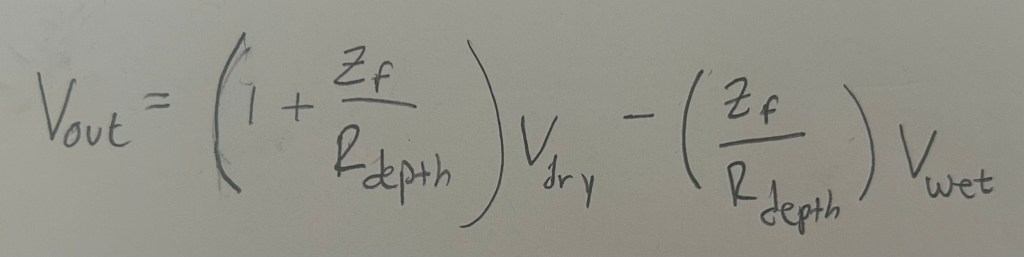 V_out = (1 + Z_f / R_depth) V_dry - (Z_f / R_depth) V_wet